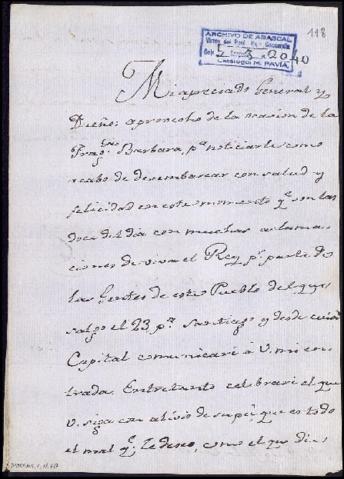 118
ARCHIVO DE ABASCAL
Virrey del Perú
5 20 40
CATALOGO M. PAVIA
Mi apreciado General y
Dueño: aprovecho de la ocasion de la
Frag.ta Barbara, p.a noticiarle como
acabo de desembarcar con salud y
felicidad en este momento q.e son las
doce del dia con muchas aclama-
ciones de viva el Rey p.r parte de
las Gentes de este Pueblo del que
salgo el 23 p.a Santiago y desde
Capital comunicaré à V. mi en-
trada. Entretanto celebraré el que
V. siga con alivio de su pie, que es todo
el mal q.e le deseo, como el que dis-